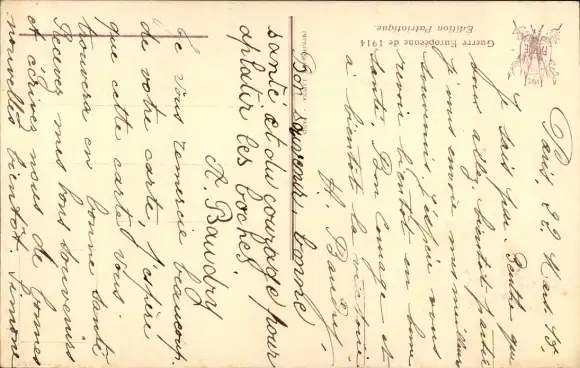 Guerre Européenne de 1914
Edition Patriotique.
Paris, 22 Mars 15.
Je sais par Berthe que
vous allez bientôt partir
Je vous envoie mes meilleurs
souvenirs, j'espère vous
revoir bientôt en bonne
santé. Bon Courage et
à bientôt la victoire
H. Baudry
Bon souvenir, bonne
santé et du courage pour
aplatir les boches.
A. Baudry
Je vous remercie beaucoup
de votre carte, j'espère
que cette carte vous
trouvera en bonne santé
Recevez mes bons souvenirs
et écrivez nous de bonnes
nouvelles bientôt. Simone